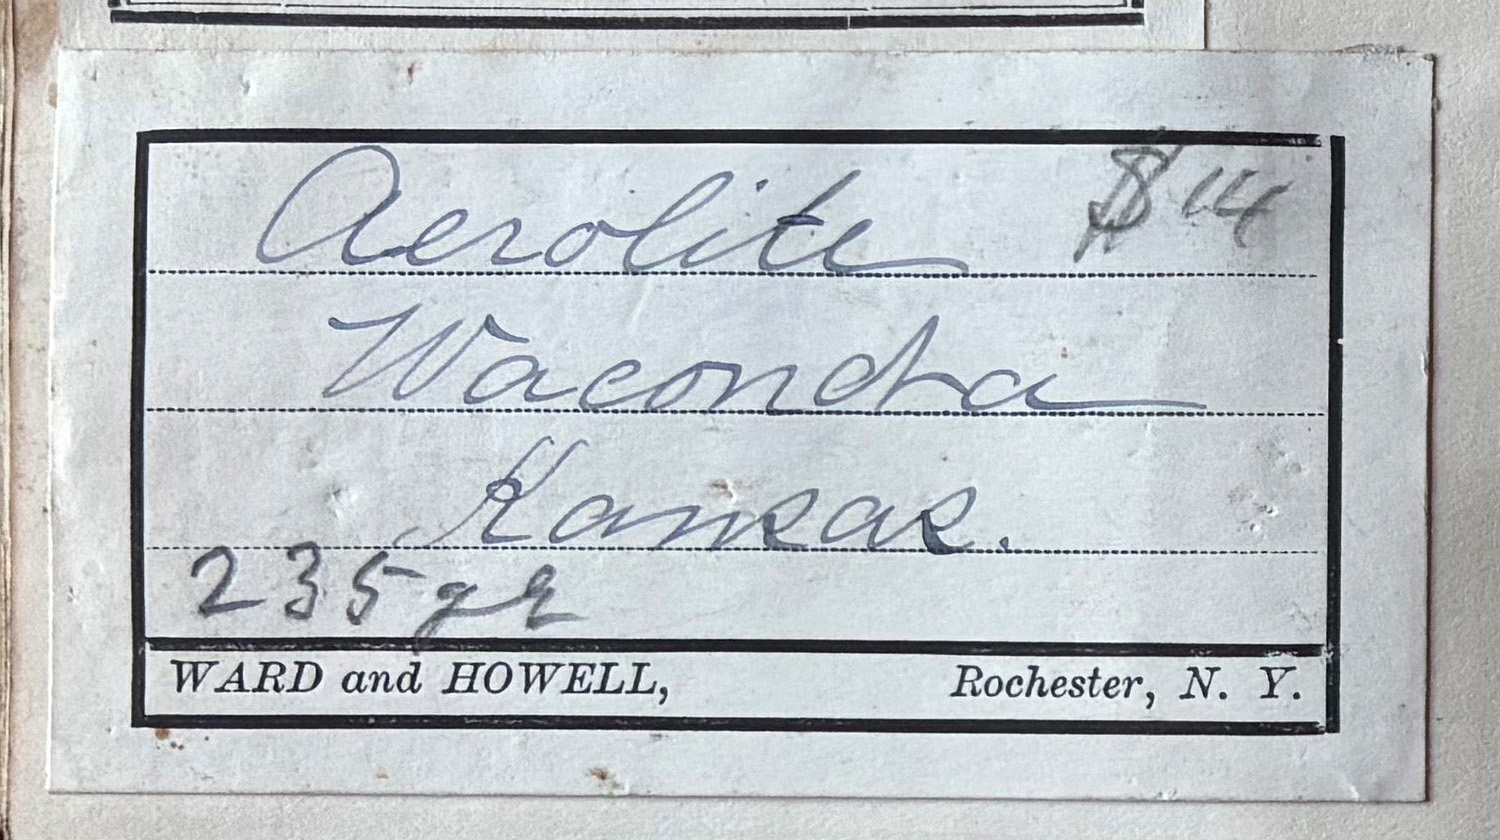 Aerolite $14
Waconda
Kansas.
235 gr
WARD and HOWELL, Rochester, N. Y.